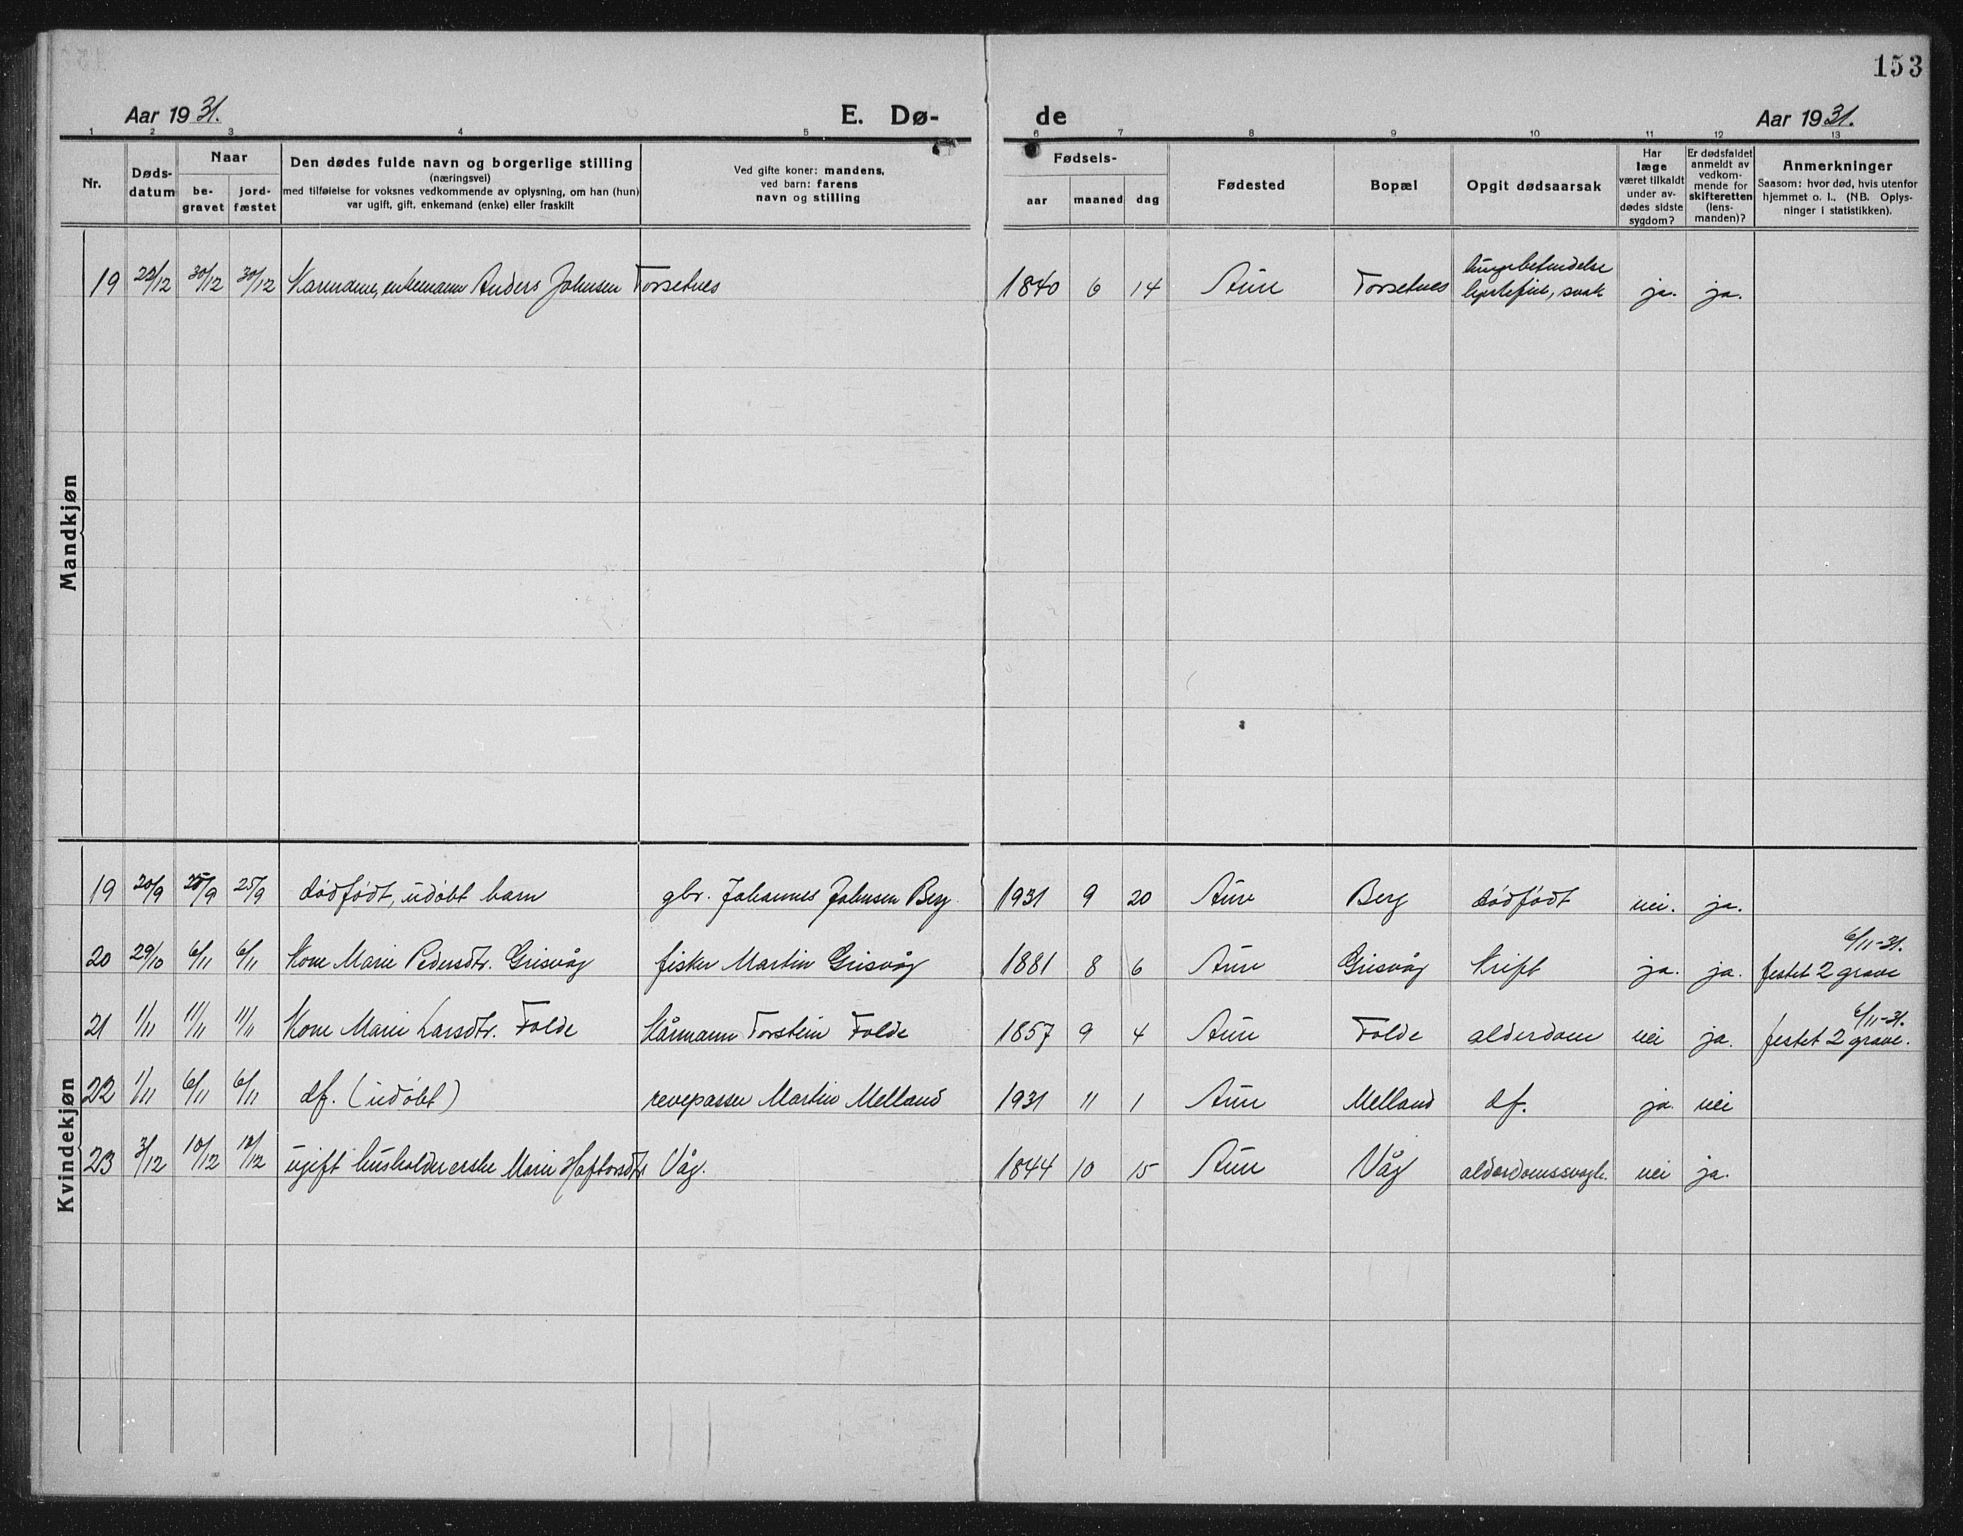 153
Aar 1931.
E. Dø-
de
Aar 1931.
1 2 3 4 5 6 7 8 9 10 11 12 13
Nr.
Døds-
datum
Naar
be-
gravet
jord-
fæstet
Den dødes fulde navn og borgerlige stilling
(næringsvei)
med tilføielse for voksnes vedkommende av oplysning, om han (hun)
var ugift, gift, enkemand (enke) eller fraskilt
Ved gifte koner: mandens,
ved barn: farens
navn og stilling
Fødsels-
aar maaned dag
Fødested
Bopæl
Opgit dødsaarsak
Har
læge
været tilkaldt
under av-
dødes sidste
sygdom?
Er dødsfaldet
anmeldt av
vedkom-
mende for
skifteretten
(lens-
manden)?
Anmerkninger
Saasom: hvor død, hvis utenfor
hjemmet o. l.. (NB. Oplys-
ninger i statistikken).
Mandkjøn
19 /12 30/12 30/12 enkemann Anders Johnsen Torsetnes 1840 6 14 Aure Torsetnes lungebetendelse
svak ja. ja.
Kvindekjøn
19 20/9 25/9 25/9 dødfødt, udøbt barn gbr. Johannes Johnsen Berg 1931 9 20 Aure Berg dødfødt nei. ja.
6/11-31.
20 29/10 6/11 6/11 Kone Marie Pedersdtr. Grisvåg fisker Martin Grisvåg 1881 8 6 Aure Grisvåg Kreft ja. ja. festet 2 grave
6/11-31.
21 1/11 11/11 11/11 Kone Marie Larsdtr. Folde Kårmann Torstein Folde 1857 9 4 Aure Folde alderdom nei ja. festet 2 grave.
22 1/11 6/11 6/11 df. (udøbt) revepasser Martin Melland 1931 11 1 Aure Melland df. ja. nei
23 3/12 10/12 10/12 ugift husholderske Marie Haftorsdtr Våg. 1844 10 15 Aure Våg alderdomssvagh. nei ja.